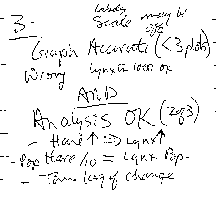 3 - labels
Scale may be off
Graph Accurate (<3 plob)
Wrong Lynx in 1000 ok
AND
Analysis OK (2 of 3)
- Hare ↑ => Lynx ↑
- Pop Hare /10 = Lynx Pop.
- Time lag of change